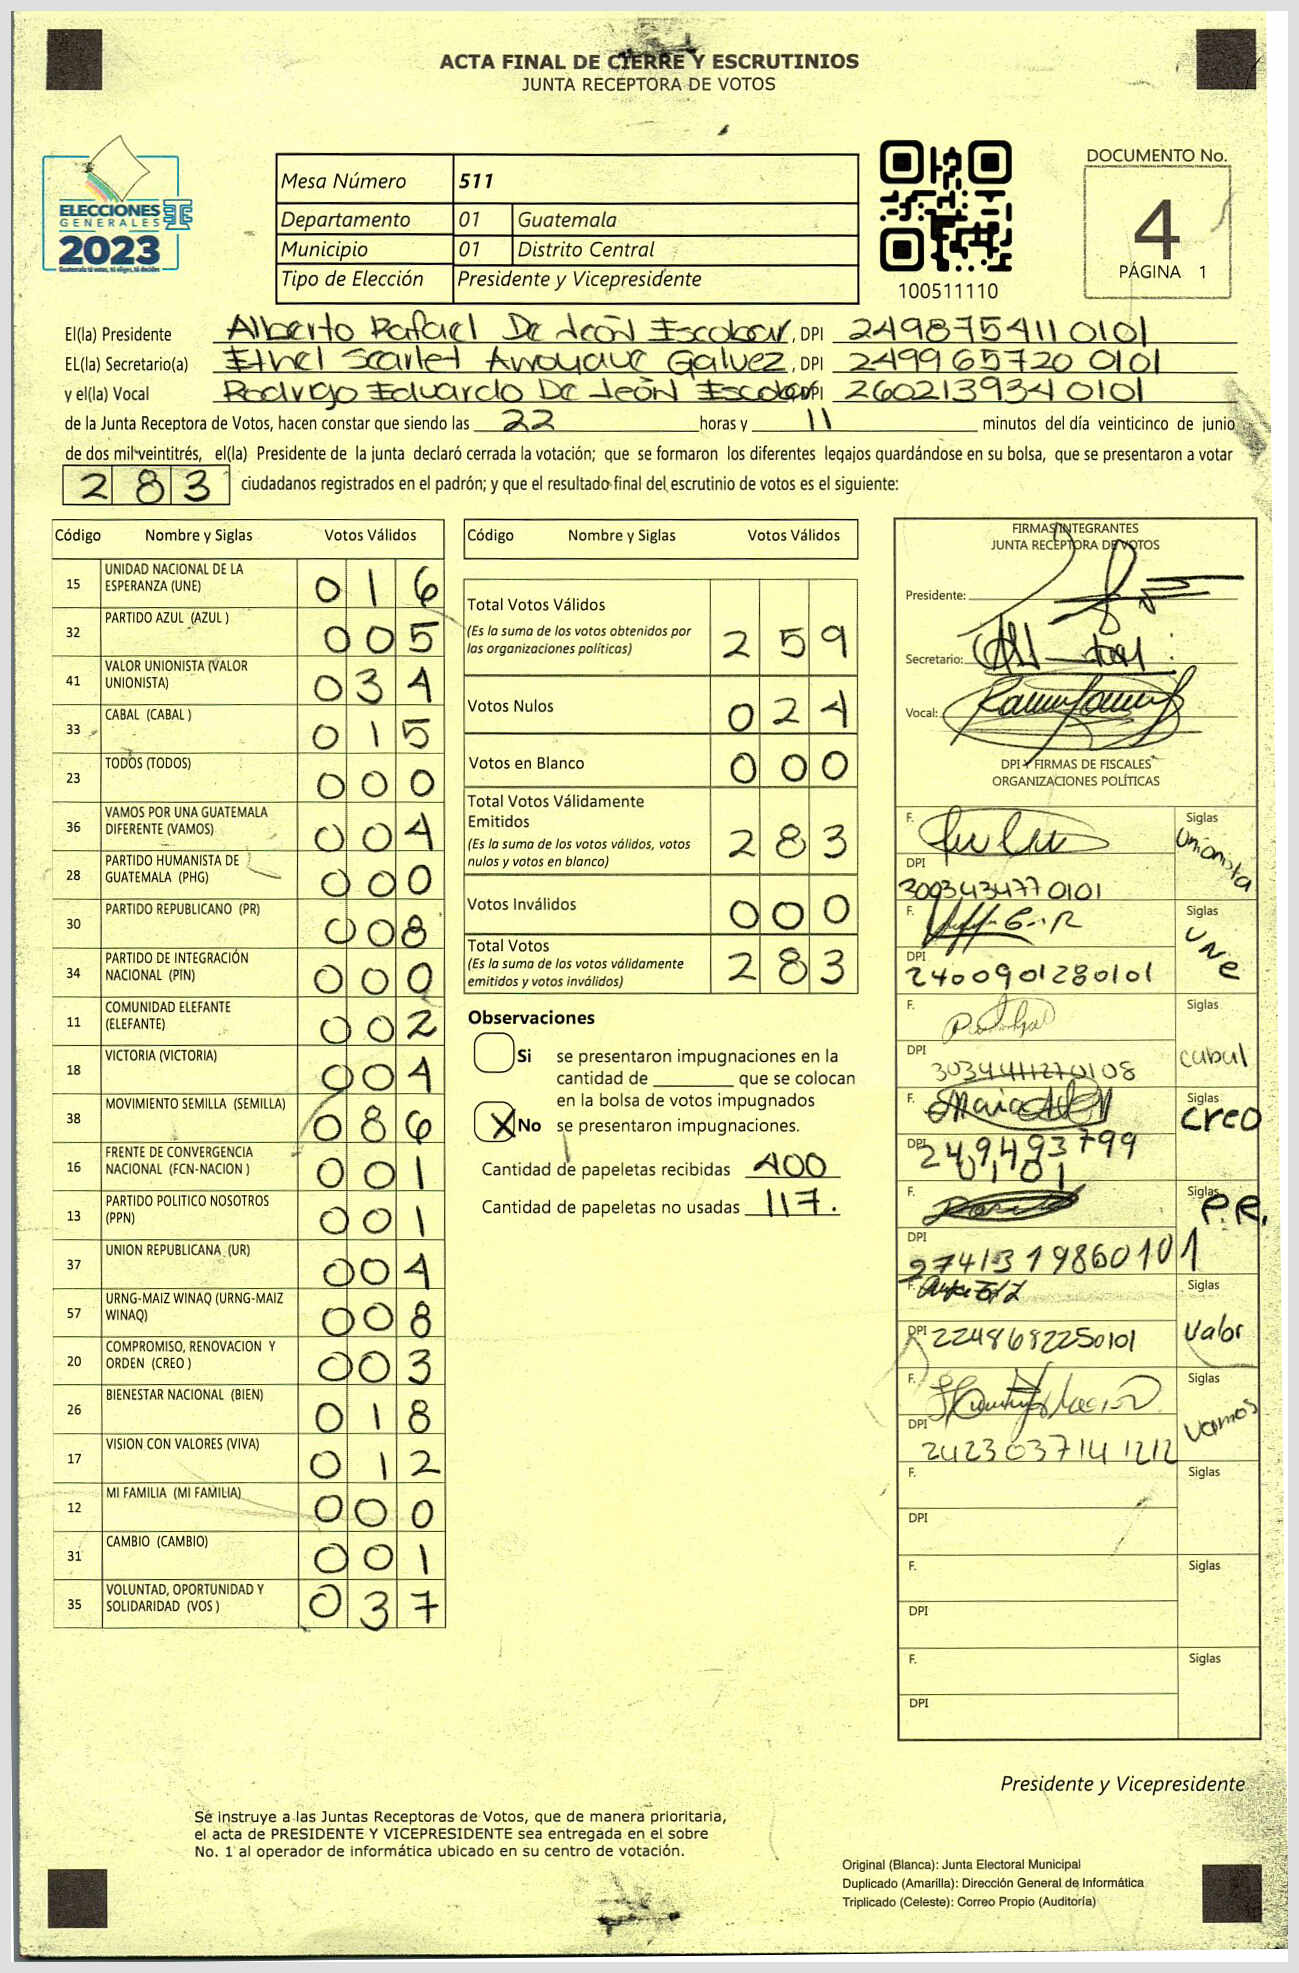 ACTA FINAL DE CIERRE Y ESCRUTINIOS
JUNTA RECEPTORA DE VOTOS
ELECCIONES
GENERALES
2023
Guatemala tú votas, tú eliges, tú decides
Mesa Número 511
Departamento 01 Guatemala
Municipio 01 Distrito Central
Tipo de Elección Presidente y Vicepresidente
100511110
DOCUMENTO No.
4
PÁGINA 1
El(la) Presidente Alberto Rafael De León Escobar, DPI 2498754110101
EL(la) Secretario(a) Ethel Scarlet Arroyave Galvez, DPI 2499657200101
y el(la) Vocal Rodrigo Eduardo De León Escobar, DPI 2602139340101
de la Junta Receptora de Votos, hacen constar que siendo las 22 horas y 11 minutos del día veinticinco de junio
de dos mil veintitrés, el(la) Presidente de la junta declaró cerrada la votación; que se formaron los diferentes legajos guardándose en su bolsa, que se presentaron a votar
283 ciudadanos registrados en el padrón; y que el resultado final del escrutinio de votos es el siguiente:
Código Nombre y Siglas Votos Válidos
15 UNIDAD NACIONAL DE LA ESPERANZA (UNE) 016
32 PARTIDO AZUL (AZUL ) 005
41 VALOR UNIONISTA (VALOR UNIONISTA) 034
33 CABAL (CABAL ) 015
23 TODOS (TODOS) 000
36 VAMOS POR UNA GUATEMALA DIFERENTE (VAMOS) 004
28 PARTIDO HUMANISTA DE GUATEMALA (PHG) 000
30 PARTIDO REPUBLICANO (PR) 008
34 PARTIDO DE INTEGRACIÓN NACIONAL (PIN) 000
11 COMUNIDAD ELEFANTE (ELEFANTE) 002
18 VICTORIA (VICTORIA) 004
38 MOVIMIENTO SEMILLA (SEMILLA) 086
16 FRENTE DE CONVERGENCIA NACIONAL (FCN-NACION ) 001
13 PARTIDO POLITICO NOSOTROS (PPN) 001
37 UNION REPUBLICANA (UR) 004
57 URNG-MAIZ WINAQ (URNG-MAIZ WINAQ) 008
20 COMPROMISO, RENOVACION Y ORDEN (CREO ) 003
26 BIENESTAR NACIONAL (BIEN) 018
17 VISION CON VALORES (VIVA) 012
12 MI FAMILIA (MI FAMILIA) 000
31 CAMBIO (CAMBIO) 001
35 VOLUNTAD, OPORTUNIDAD Y SOLIDARIDAD (VOS ) 037
Código Nombre y Siglas Votos Válidos
Total Votos Válidos
(Es la suma de los votos obtenidos por
las organizaciones políticas) 259
Votos Nulos 024
Votos en Blanco 000
Total Votos Válidamente
Emitidos
(Es la suma de los votos válidos, votos
nulos y votos en blanco) 283
Votos Inválidos 000
Total Votos
(Es la suma de los votos válidamente
emitidos y votos inválidos) 283
Observaciones
Si se presentaron impugnaciones en la
cantidad de ________ que se colocan
en la bolsa de votos impugnados
X No se presentaron impugnaciones.
Cantidad de papeletas recibidas 400
Cantidad de papeletas no usadas 117.
FIRMAS INTEGRANTES
JUNTA RECEPTORA DE VOTOS
Presidente:
Secretario:
Vocal:
DPI Y FIRMAS DE FISCALES
ORGANIZACIONES POLÍTICAS
F. Siglas Unionista
DPI 3003434770101
F. Siglas UNE
DPI 2400901280101
F. Siglas cabal
DPI
F. Siglas creo
DPI 249493799
0101
F. Siglas P.R.
DPI 2741319860101
F. Siglas Valor
DPI 2248682250101
F. Siglas Vamos
DPI 2423037141212
F. Siglas
DPI
F. Siglas
DPI
F. Siglas
DPI
Presidente y Vicepresidente
Se instruye a las Juntas Receptoras de Votos, que de manera prioritaria,
el acta de PRESIDENTE Y VICEPRESIDENTE sea entregada en el sobre
No. 1 al operador de informática ubicado en su centro de votación.
Original (Blanca): Junta Electoral Municipal
Duplicado (Amarilla): Dirección General de Informática
Triplicado (Celeste): Correo Propio (Auditoría)